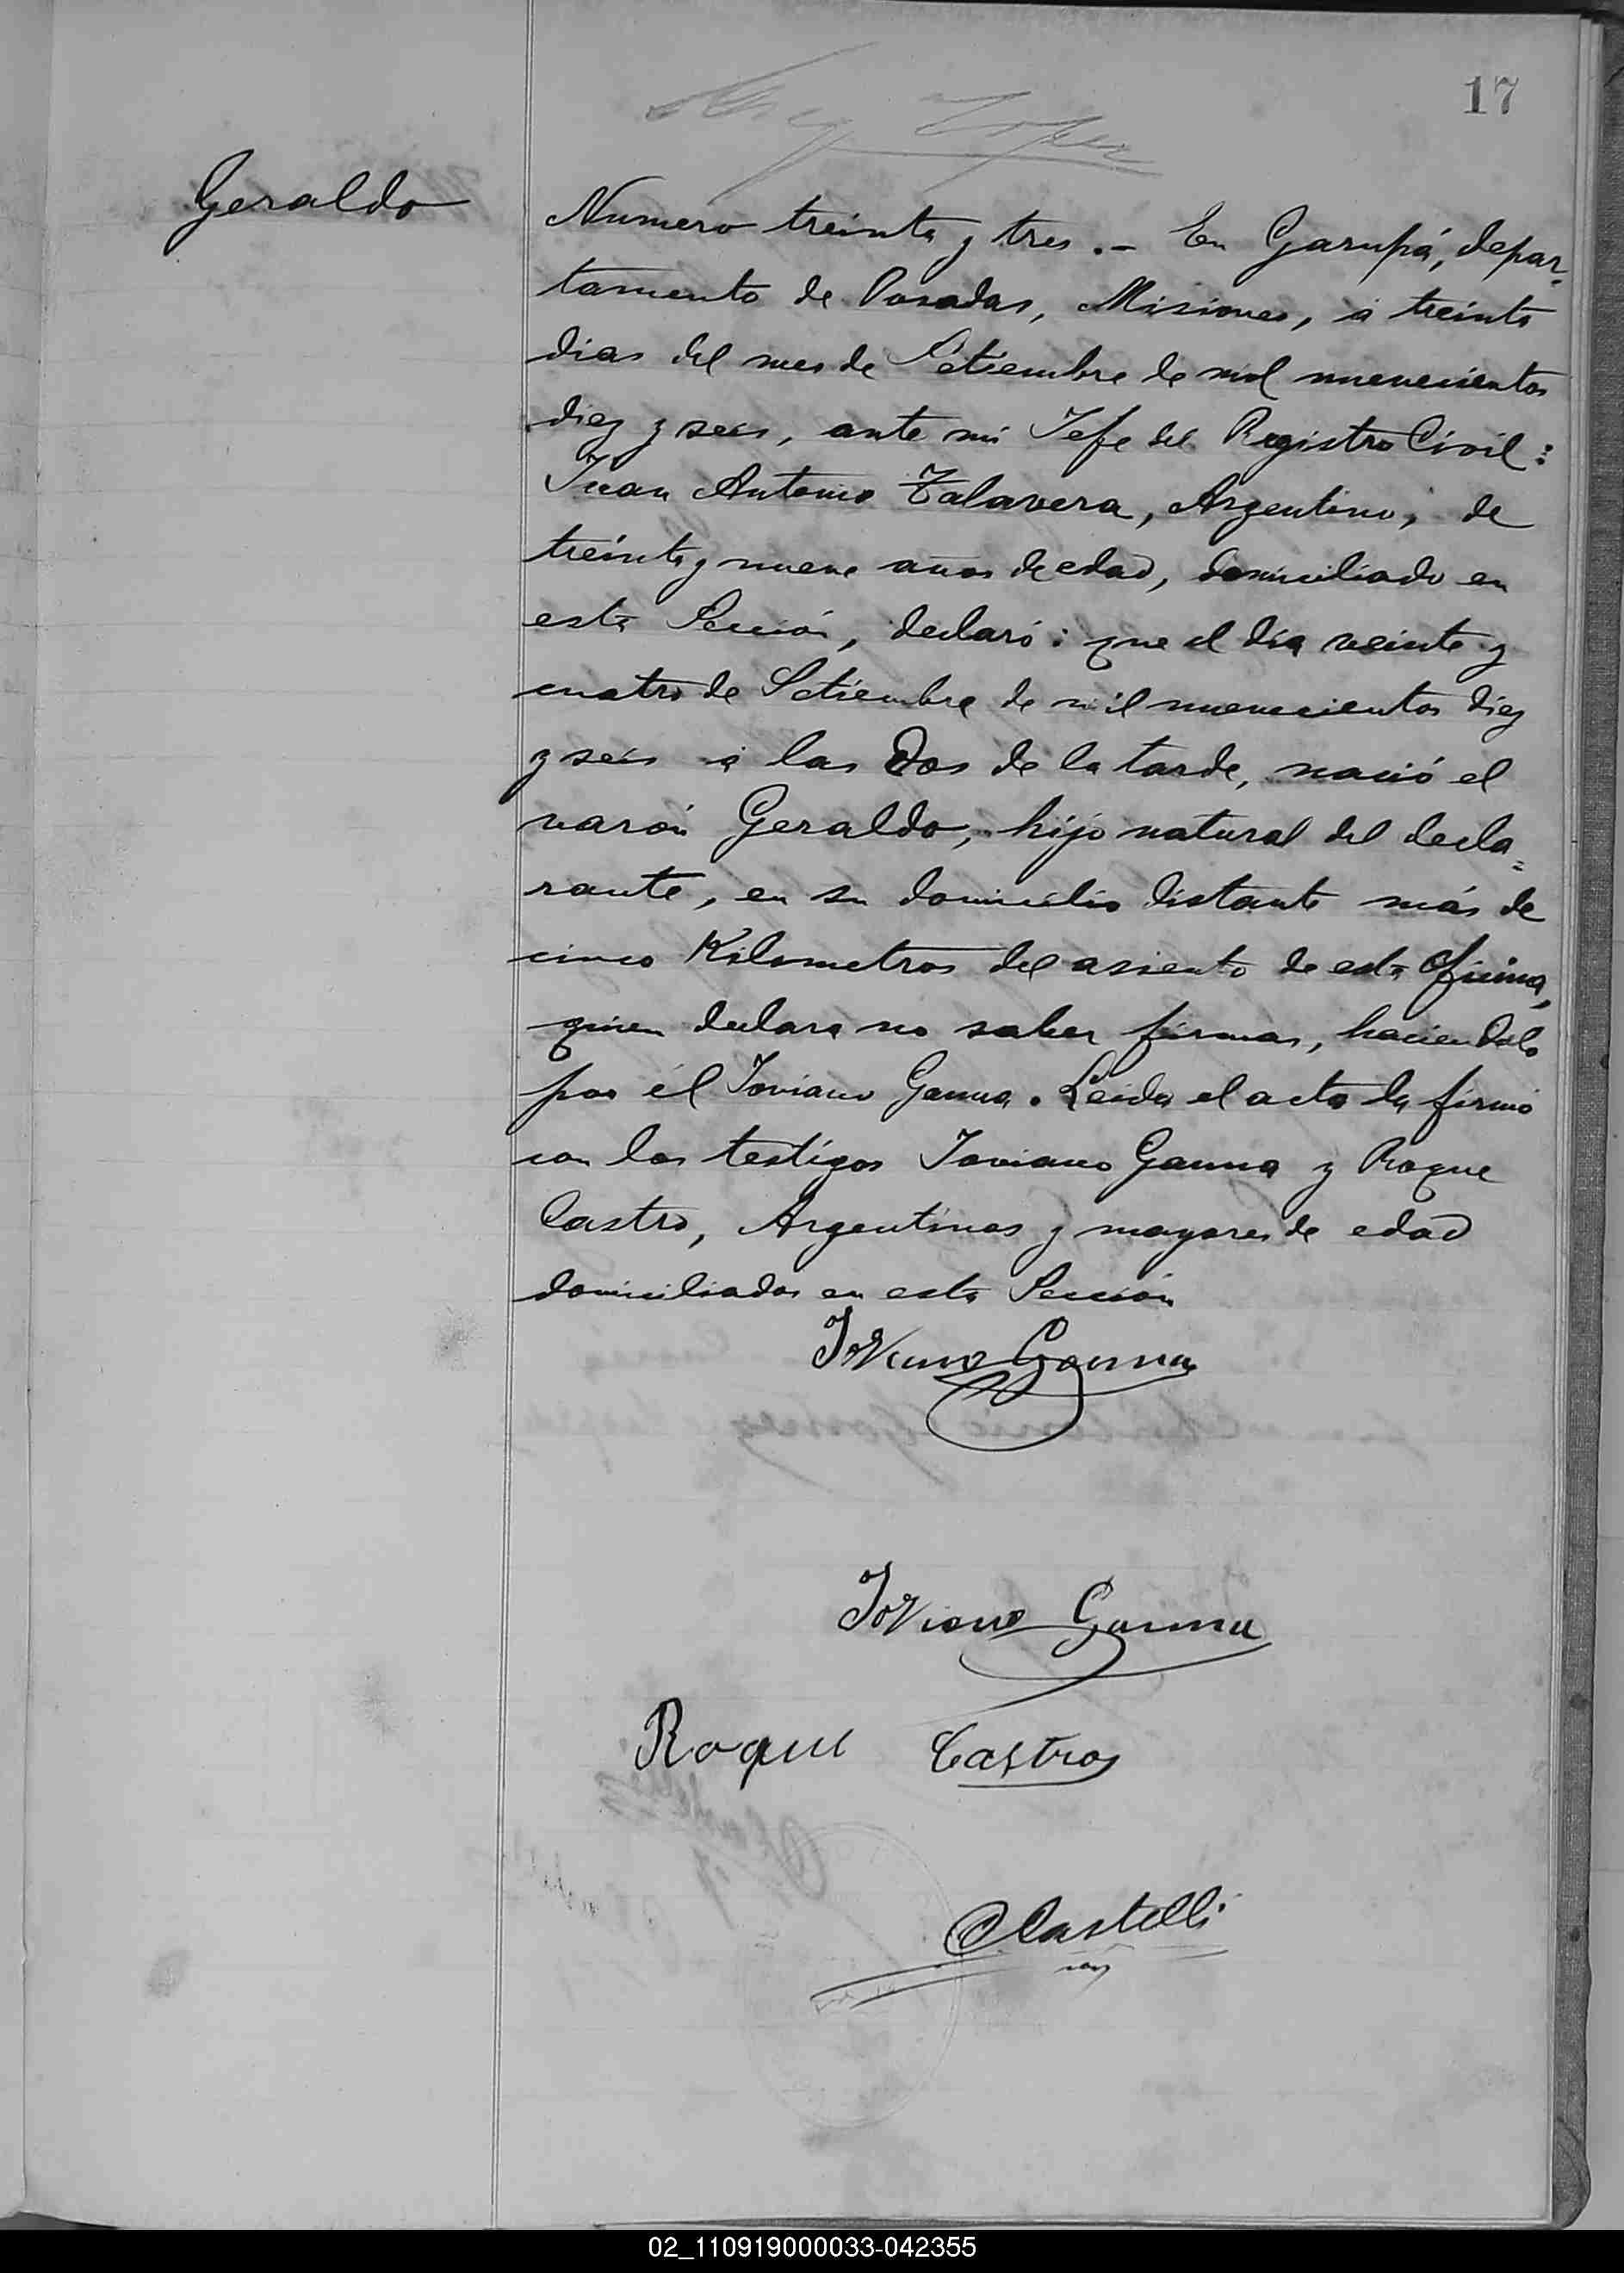 17
Geraldo
Numero treinta y tres .- En Garupá, depar-
tamento de Posadas, Misiones, á treinta
dias del mes de Setiembre de mil nuevecientos
diez y seis, ante mi Jefe del Registro Civil:
Juan Antonio Talavera, Argentino, de
treinta y nueve años de edad, domiciliado en
esta Sección, declaró: que el dia veinte y
cuatro de Setiembre de mil nuevecientos diez
y seis á las Dos de la tarde, nació el
varón Geraldo, hijo natural del decla=
rante, en su domicilio distante más de
cinco Kilometros del asiento de esta Oficina,
quien declara no saber firmar, haciendolo
por él Joviano Gauna. Leida el acta la firmó
con los testigos Joviano Gauna y Roque
Castro, Argentinos y mayores de edad
domiciliados en esta Sección
Joviano Gauna
Joviano Gauna
Roque Castro
Castelli
02_110919000033-042355